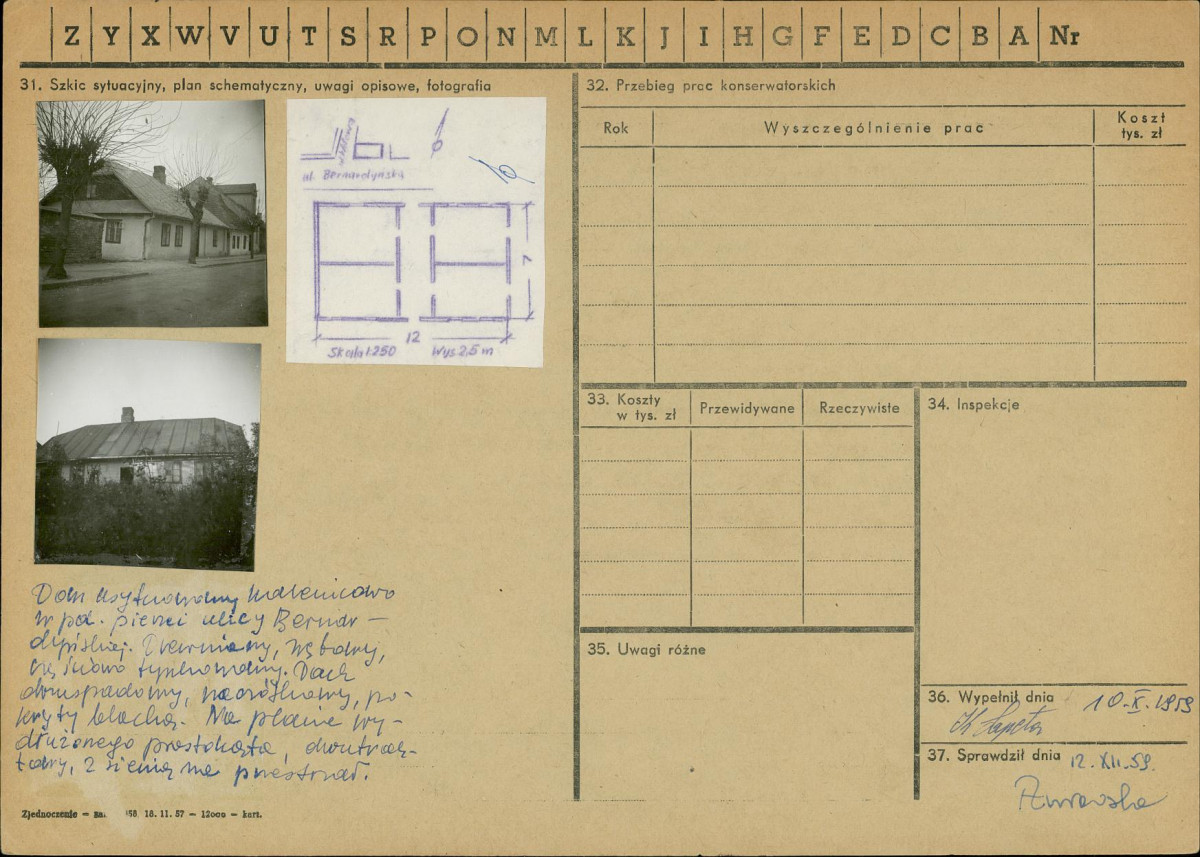 Z Y X W V U T S R P O N M L K J I H G F E D C B A Nr
31. Szkic sytuacyjny, plan schematyczny, uwagi opisowe, fotografia
ul. Bernardyńska
7
12
Skala 1:250 Wys. 2,5 m
Dom usytuowany kalenicowo
w pd. pierzei ulicy Bernar-
dyńskiej. Drewniany, zrębowy,
częściowo tynkowany. Dach
dwuspadowy, naczółkowy, po-
kryty blachą. Na planie wy-
dłużonego prostokąta, dwutrak-
towy, z sienią na przestrzał.
Zjednoczenie – 18. 11. 57 – 12000 – kart.
32. Przebieg prac konserwatorskich
Rok Wyszczególnienie prac Koszt
tys. zł
33. Koszty
w tys. zł Przewidywane Rzeczywiste
34. Inspekcje
35. Uwagi różne
36. Wypełnił dnia 10-X-1959
37. Sprawdził dnia 12. XII. 59.